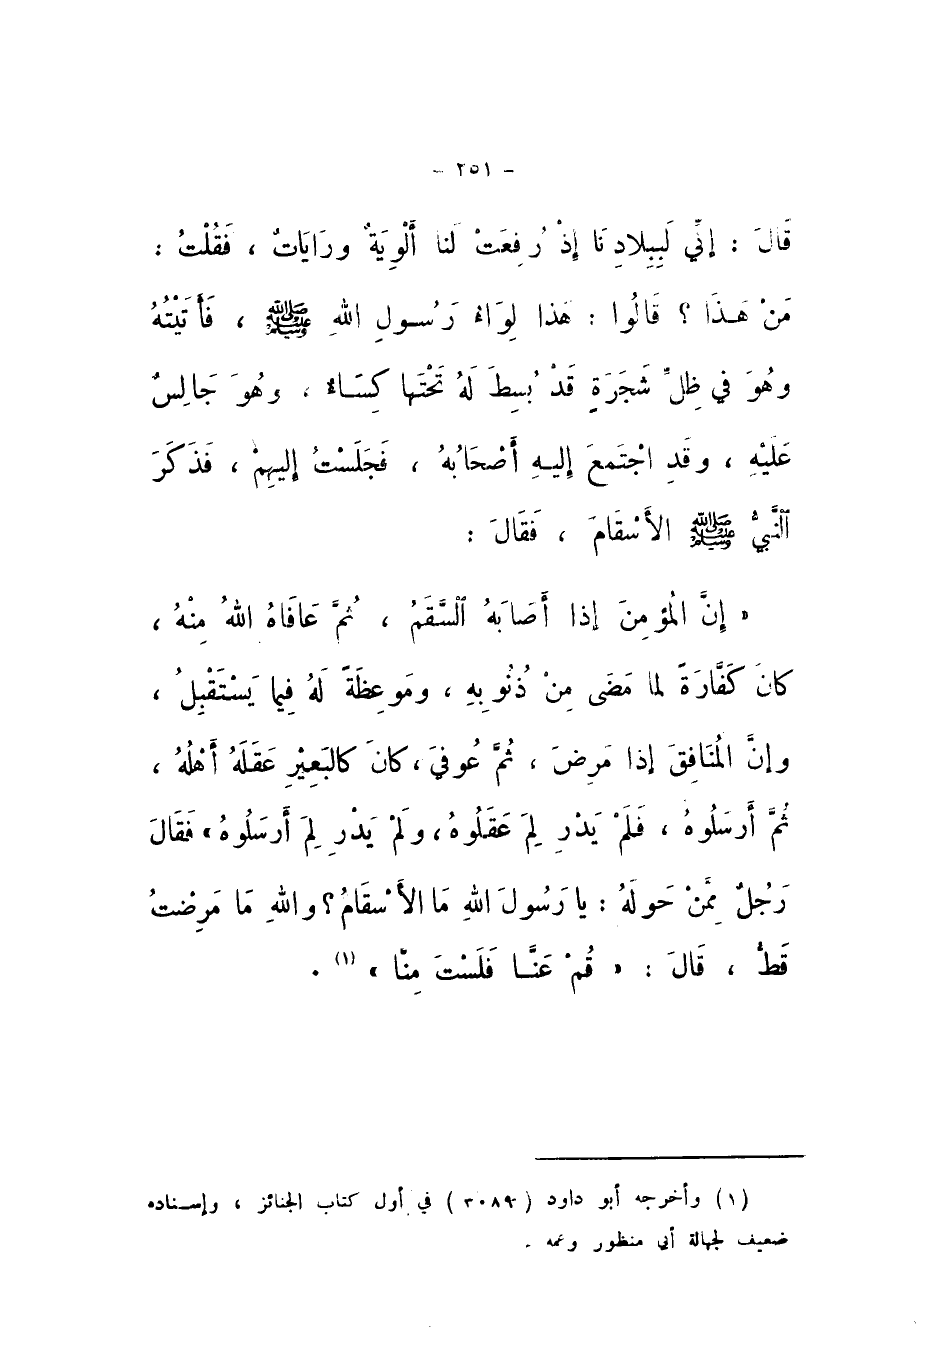 - ٢٥١ -
قَالَ : إِنِّي لَبِبِلادِنَا إِذْ رُفِعَتْ لَنا أَلْوِيَةٌ ورَايَاتٌ ، فَقُلْتُ :
مَنْ هَـذَا ؟ قَالُوا : هَذا لِوَاءُ رَسُـولِ اللهِ ﷺ ، فَأَتَيْتُهُ
وهُوَ في ظِلِّ شَجَرَةٍ قَدْ بُسِطَ لَهُ تَحْتَها كِسَـاءٌ ، وهُوَ جَالِسٌ
عَلَيْهِ ، وقَدِ اجْتَمعَ إِليـهِ أَصْحَابُهُ ، فَجَلَسْتُ إِليهِمْ ، فَذَكَرَ
النَّبِيُّ ﷺ الأَسْقَامَ ، فَقَالَ :
« إِنَّ المُؤمِنَ إِذا أَصَابَهُ السَّقَمُ ، ثُمَّ عَافَاهُ اللهُ مِنْهُ ،
كانَ كَفَّارَةً لما مَضَى مِنْ ذُنُوبِهِ ، ومَوعِظَةً لَهُ فِيما يَسْتَقْبِلُ ،
وإِنَّ المُنَافِقَ إِذا مَرِضَ ، ثُمَّ عُوفيَ ، كانَ كالبَعِيْرِ عَقَلَهُ أَهْلُهُ ،
ثُمَّ أَرسَلُوهُ ، فَلَمْ يَدْرِ لِمَ عَقَلُوهُ ، ولَمْ يَدْرِ لِمَ أَرسَلُوهُ » فَقَالَ
رَجُلٌ مِمَّنْ حَولَهُ : يا رَسُولَ اللهِ مَا الأَسْقَامُ ؟ واللهِ مَا مَرِضْتُ
قَطُّ ، قَالَ : « قُمْ عَنَّـا فَلَسْتَ مِنَّا » (١) .
(١) وأخرجه أبو داود ( ٣٠٨٩ ) في أول كتاب الجنائز ، وإسـناده
ضعيف لجهالة أبي منظور وعمه .